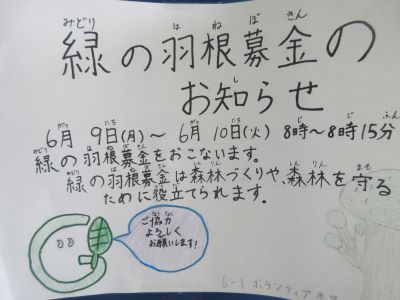 緑の羽根募金の
お知らせ
6月 9日(月)～ 6月 10日(火) 8時～8時15分
緑の羽根募金をおこないます。
緑の羽根募金は森林づくりや、森林を守る
ために役立てられます。
ご協力
よろしく
お願いします!
6-1 ボランティア